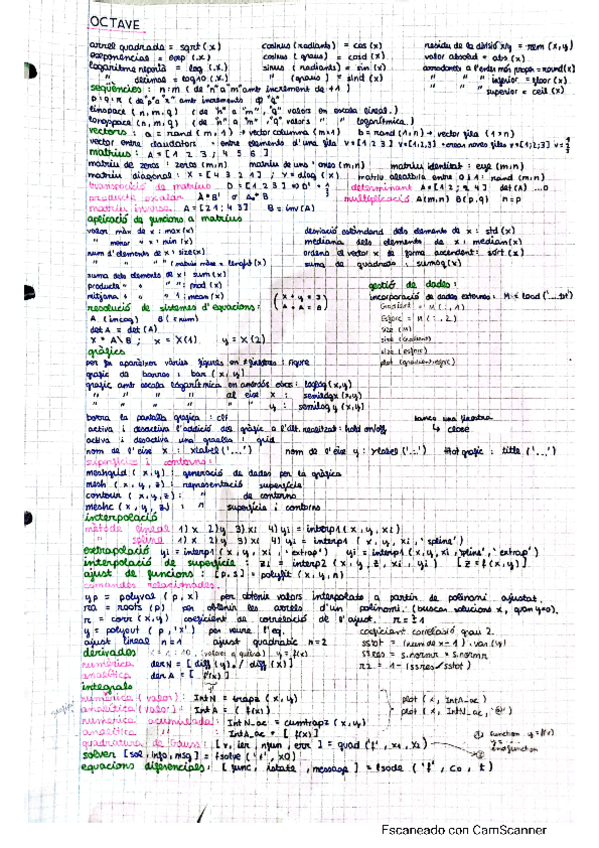 OCTAVE
arrel quadrada = sqrt (x) cosinus (radiants) = cos (x) residu de la divisió x/y = rem (x, y)
exponencial = exp (x) cosinus (graus) = cosd (x) valor absolut = abs (x)
logaritme neperià = log (x) sinus (radiants) = sin (x)
" decimal = log10 (x) " (graus) = sind (x) " " inferior = floor (x)
seqüències : n:m ( de "n" a "m" amb increment de +1 ) " " superior = ceil (x)
linspace (n, m, q) ( de "n" a "m", "q" valors en escala lineal. )
logspace (n, m, q) ( de "n" a "m", "q" valors " " logarítmica. )
vectors : a = rand (m, 1) → vector columna (m×1) b = rand (1, n) → vector fila (1×n)
matrius : A = [1 2 3 ; 4 5 6 ]
matriu de zeros : zeros (m, n) matriu de uns : ones (m, n) matriu identitat : eye (m, n)
matriu diagonal : X = [4 3 2 1] ; Y = diag (X) matriu aleatòria entre 0 i 1 : rand (m, n)
transposició de matrius determinant A = [1 2 ; 3 4] det (A)
producte escalar multiplicació A(m,n) B(p,q) n=p
matriu inversa A = [2 1 ; 4 3] B = inv (A)
aplicació de funcions a matrius
valor màx de x : max (x) desviació estàndard dels elements de x : std (x)
" menor " x : min (x) mediana dels elements de x : median (x)
num d'elements de x : size (x) ordena el vector x de forma ascendent : sort (x)
suma de quadrats : sumsq (x)
suma dels elements de x : sum (x) gestió de dades :
mitjana " " : mean (x) incorporació de dades externes : M = load ('...txt')
resolució de sistemes d'equacions :
A (incog) B (= num)
det A = det (A)
X = A\B ; x = X(1) y = X(2) plot (gradient, esforç)
gràfics
per fer aparèixer vàries figures en finestres : figure
gràfic de barres : bar (x, y)
gràfic amb escala logarítmica en ambdós eixos : loglog (x, y)
" " " " al eix x : semilogx (x, y)
" " " " " y : semilogy (x, y)
borra la pantalla gràfica : clf tanca una finestra
activa i desactiva l'addició del gràfic a l'últ. realitzat : hold on/off → close
activa i desactiva una graella : grid
nom de l'eix x : xlabel ('...') nom de l'eix y : ylabel ('...') títol gràfic : title ('...')
superfícies i contorns :
meshgrid (x, y) : generació de dades per la gràfica
mesh (x, y, z) : representació superfície
contour (x, y, z) : " de contorns
meshc (x, y, z) : " superfície i contorns
interpolació
mètode lineal 1) x 2) y 3) xi 4) yi = interp1 (x, y, xi)
" spline 1) x 2) y 3) xi 4) yi = interp1 (x, y, xi, 'spline')
extrapolació yi = interp1 (x, y, xi, 'extrap') yi = interp1 (x, y, xi, 'spline', 'extrap')
interpolació de superfície : zi = interp2 (x, y, z, xi, yi) [z = f(x, y)]
ajust de funcions : [p, s] = polyfit (x, y, n)
comandes relacionades.
yp = polyval (p, x) per obtenir valors interpolats a partir de polinomi ajustat.
rea = roots (p) per obtenir les arrels d'un polinomi. (buscar solucions x, quan y=0).
r = corr (x, y) coeficient de correlació de l'ajust. r = ±1
y = polyout (p, 'x') per veure l'eq. coeficient correlació grau 2.
ajust lineal n=1 ajust quadràtic n=2 sstot = (num de x − 1) · var (y)
derivades ssres = s.normr * s.normr
numèrica der N = [ diff (y) ./ diff (x) ] r2 = 1 − (ssres/sstot)
analítica der A = [ f'(x) ]
integrals
numèrica (valor) : Int N = trapz (x, y) plot (x, IntA_ac)
analítica (valor) : Int A = ( f(x) )
numèrica acumulada : Int N_ac = cumtrapz (x, y)
analítica " : Int A_ac = [ f(x) ] ① function y = f(x)
quadratura de Gauss : [v, ier, nfun, err] = quad ('f', x0, x1) endfunction
solver [sol, info, msg] = fsolve ('f', x0)
equacions diferencials : [func, istate, message] = lsode ('f', co, t)
Escaneado con CamScanner